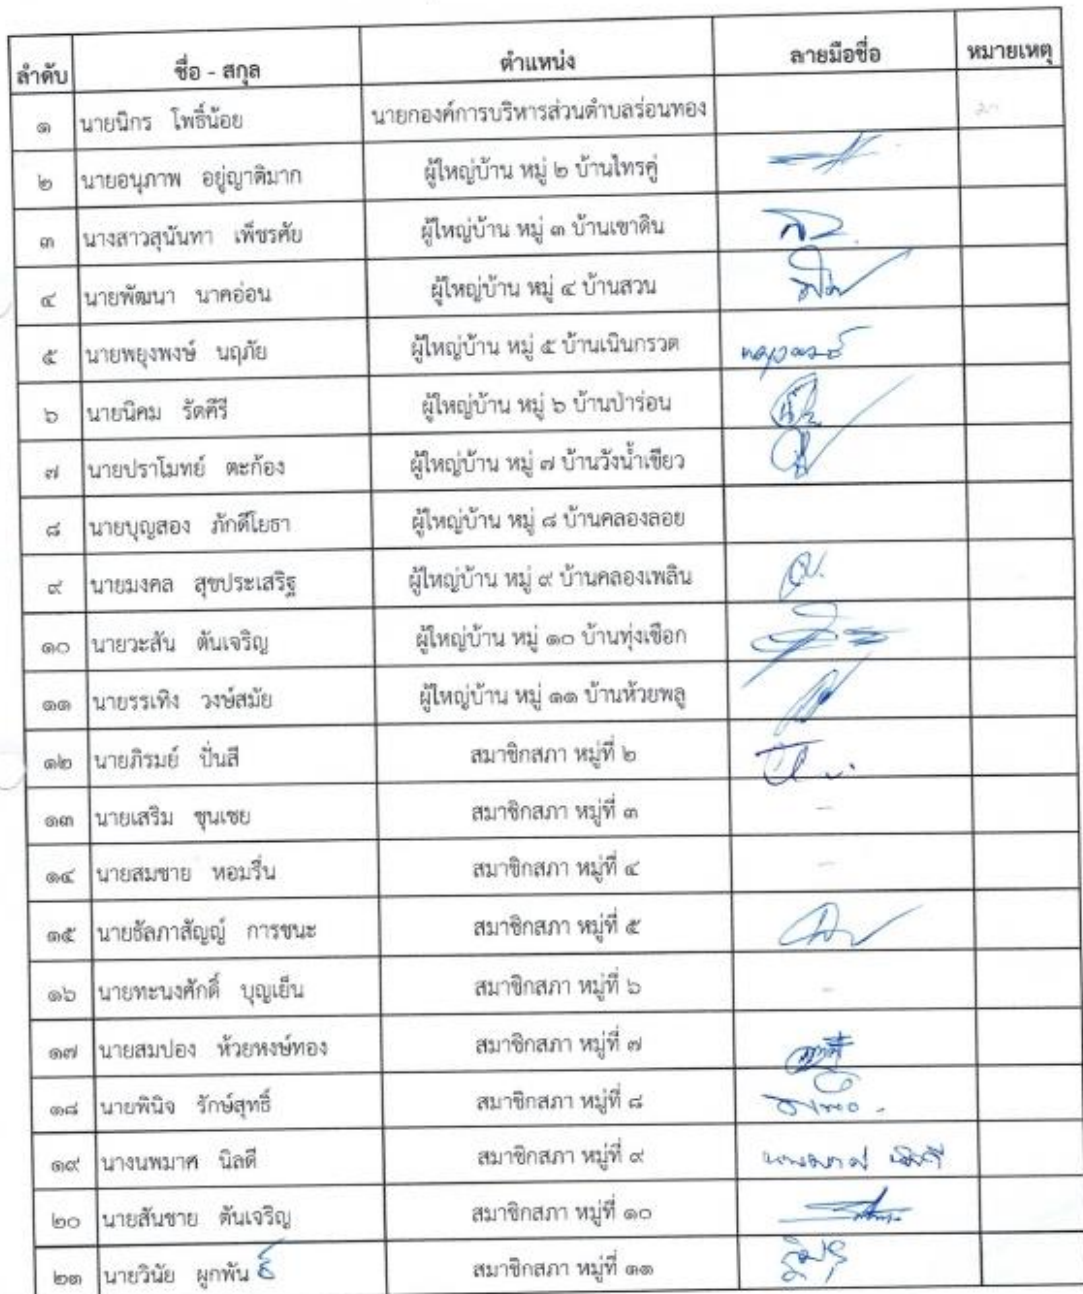 ลำดับ ชื่อ - สกุล ตำแหน่ง ลายมือชื่อ หมายเหตุ
๑ นายนิกร โพธิ์น้อย นายกองค์การบริหารส่วนตำบลร่อนทอง มา
๒ นายอนุภาพ อยู่ญาติมาก ผู้ใหญ่บ้าน หมู่ ๒ บ้านไทรคู่
๓ นางสาวสุนันทา เพ็ชรศัย ผู้ใหญ่บ้าน หมู่ ๓ บ้านเขาดิน
๔ นายพัฒนา นาคอ่อน ผู้ใหญ่บ้าน หมู่ ๔ บ้านสวน
๕ นายพยุงพงษ์ นฤภัย ผู้ใหญ่บ้าน หมู่ ๕ บ้านเนินกรวด
๖ นายนิคม รัดคีรี ผู้ใหญ่บ้าน หมู่ ๖ บ้านป่าร่อน
๗ นายปราโมทย์ ตะก้อง ผู้ใหญ่บ้าน หมู่ ๗ บ้านวังน้ำเขียว
๘ นายบุญสอง ภักดีโยธา ผู้ใหญ่บ้าน หมู่ ๘ บ้านคลองลอย
๙ นายมงคล สุขประเสริฐ ผู้ใหญ่บ้าน หมู่ ๙ บ้านคลองเพลิน
๑๐ นายวะสัน ตันเจริญ ผู้ใหญ่บ้าน หมู่ ๑๐ บ้านทุ่งเชือก
๑๑ นายรรเทิง วงษ์สมัย ผู้ใหญ่บ้าน หมู่ ๑๑ บ้านห้วยพลู
๑๒ นายภิรมย์ ปั่นสี สมาชิกสภา หมู่ที่ ๒
๑๓ นายเสริม ชุนเชย สมาชิกสภา หมู่ที่ ๓ -
๑๔ นายสมชาย หอมรื่น สมาชิกสภา หมู่ที่ ๔ -
๑๕ นายธัลภาสัญญ์ การชนะ สมาชิกสภา หมู่ที่ ๕
๑๖ นายทะนงศักดิ์ บุญเย็น สมาชิกสภา หมู่ที่ ๖ -
๑๗ นายสมปอง ห้วยหงษ์ทอง สมาชิกสภา หมู่ที่ ๗
๑๘ นายพินิจ รักษ์สุทธิ์ สมาชิกสภา หมู่ที่ ๘
๑๙ นางนพมาศ นิลดี สมาชิกสภา หมู่ที่ ๙ นพมาศ นิลดี
๒๐ นายสันชาย ตันเจริญ สมาชิกสภา หมู่ที่ ๑๐
๒๑ นายวินัย ผูกพันธ์ สมาชิกสภา หมู่ที่ ๑๑